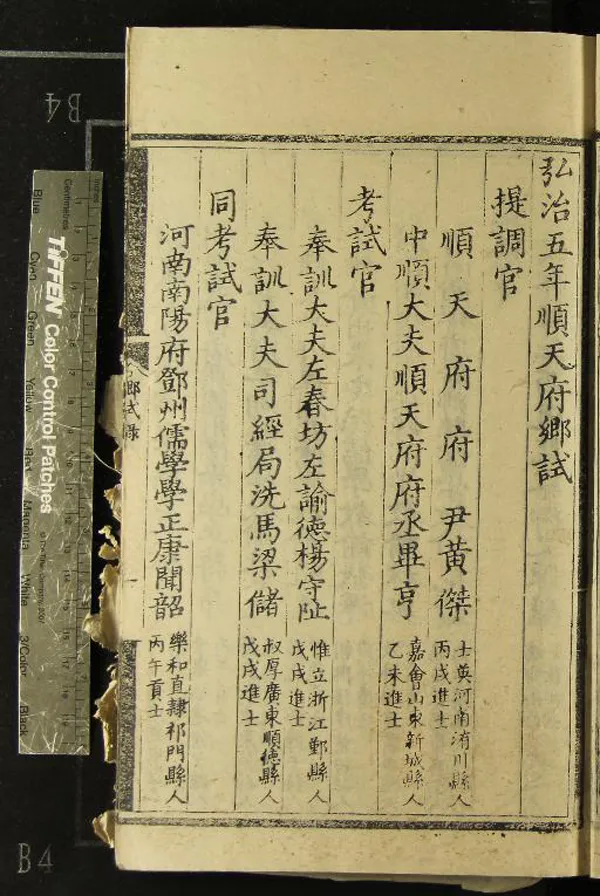 弘治五年順天府鄉試
提調官
順天府府尹黃傑
士英河南洧川縣人
丙戌進士
中順大夫順天府府丞畢亨
嘉會山東新城縣人
乙未進士
考試官
奉訓大夫左春坊左諭德楊守阯
惟立浙江鄞縣人
戊戌進士
奉訓大夫司經局洗馬梁儲
叔厚廣東順德縣人
戊戌進士
同考試官
河南南陽府鄧州儒學學正康聞韶
樂和直隸祁門縣人
丙午貢士
鄉試錄
一
B4
B4
TIFFEN Color Control Patches
Centimetres
Blue
Cyan
Green
Yellow
Red
Magenta
White
3/Color
Black